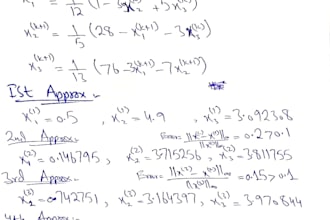 x₁⁽ᵏ⁺¹⁾ = 1/12 (1 - 3x₂⁽ᵏ⁾ + 5x₃⁽ᵏ⁾)
x₂⁽ᵏ⁺¹⁾ = 1/5 (28 - x₁⁽ᵏ⁺¹⁾ - 3x₃⁽ᵏ⁾)
x₃⁽ᵏ⁺¹⁾ = 1/13 (76 - 3x₁⁽ᵏ⁺¹⁾ - 7x₂⁽ᵏ⁺¹⁾)
Ist Approx -
x₁⁽¹⁾ = 0.5 , x₂⁽¹⁾ = 4.9 , x₃⁽¹⁾ = 3.0923.8
2nd Approx. Error = = 0.2701
x₁⁽²⁾ = 0.146795 , x₂⁽²⁾ = 3.715256 , x₃⁽²⁾ = 3.811755
3rd Approx. Error = = 0.15 > 0.1
= 0.742751 , x₂⁽³⁾ = 3.164397 , = 3.970844
4th Approx